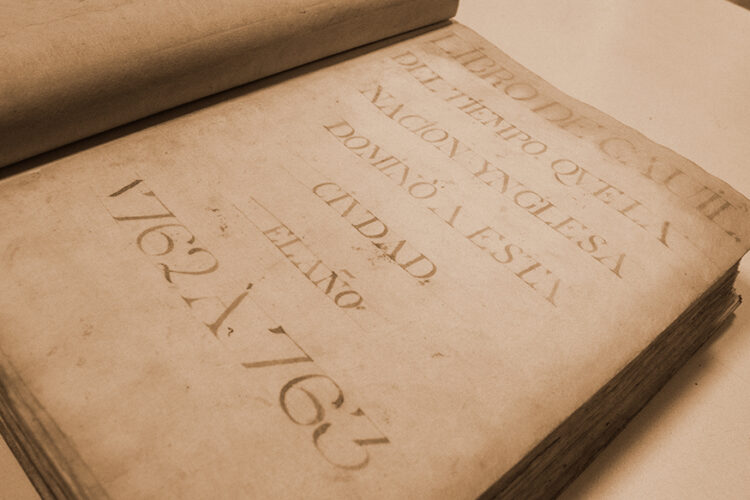 LIBRO DE CAVIL.
DEL TIEMPO QVE LA
NACION YNGLESA
DOMINÒ A ESTA
CIVDAD,
EL AÑO
1762 À 1763